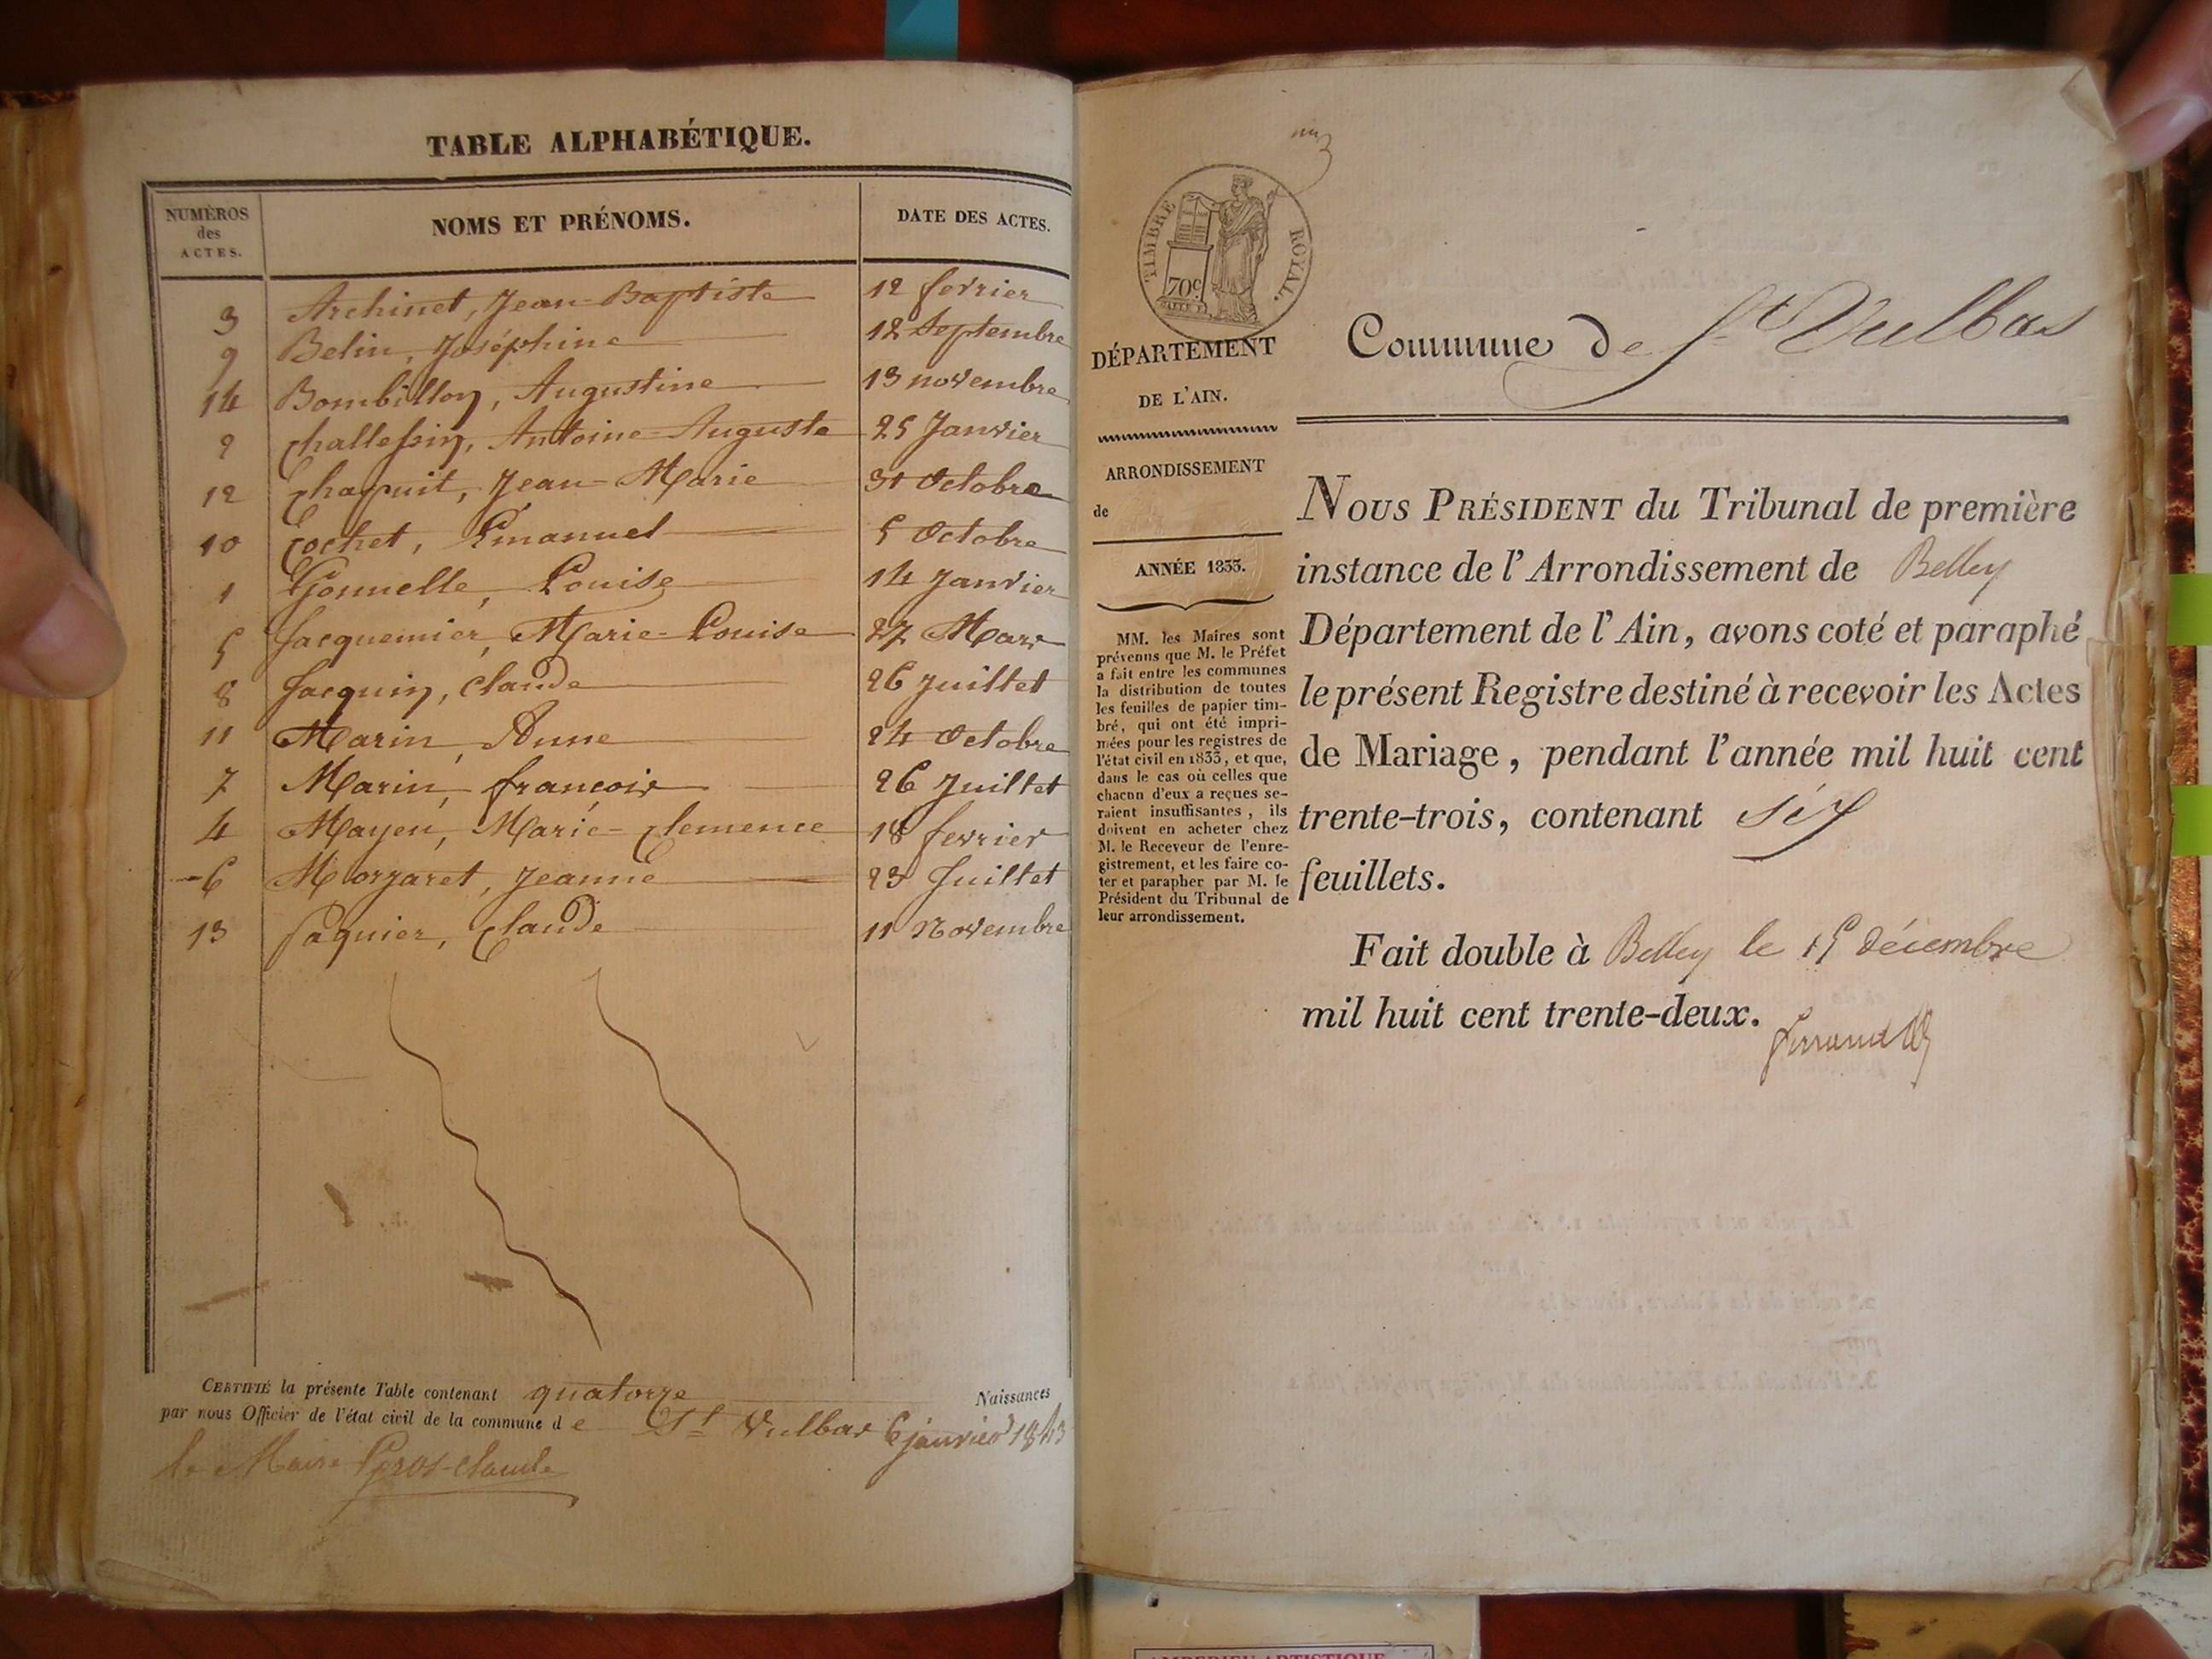 TABLE ALPHABÉTIQUE.
NUMÉROS des ACTES. NOMS ET PRÉNOMS. DATE DES ACTES.
3 Archinet, Jean-Baptiste 12 fevrier
9 Belin, Joséphine 12 Septembre
14 Bombillon, Augustine 13 novembre
2 Challessin, Antoine-Auguste 25 Janvier
12 Chapuit, Jean-Marie 31 Octobre
10 Cochet, Emanuel 5 Octobre
1 Gonnelle, Louise 14 Janvier
5 Jacquemier, Marie-Louise 27 Mars
8 Jacquin, Claude 26 Juillet
11 Marin, Anne 24 Octobre
7 Marin, francois 26 Juillet
4 Mayen, Marie-Clemence 18 fevrier
6 Morgaret, Jeanne 23 Juillet
13 Paquier, Claude 11 Novembre
CERTIFIÉ la présente Table contenant quatorze Naissances
par nous Officier de l'état civil de la commune de St Vulbas 6 janvier
le Maire Gros-Claude
TIMBRE ROYAL.
70c
DÉPARTEMENT
DE L'AIN.
ARRONDISSEMENT
de
ANNÉE 1833.
MM. les Maires sont
prévenus que M. le Préfet
a fait entre les communes
la distribution de toutes
les feuilles de papier tim-
bré, qui ont été impri-
mées pour les registres de
l'état civil en 1833, et que,
dans le cas où celles que
chacun d'eux a reçues se-
raient insuffisantes, ils
doivent en acheter chez
M. le Receveur de l'enre-
gistrement, et les faire co-
ter et parapher par M. le
Président du Tribunal de
leur arrondissement.
Commune de St Vulbas
NOUS PRÉSIDENT du Tribunal de première
instance de l'Arrondissement de Belley
Département de l'Ain, avons coté et paraphé
le présent Registre destiné à recevoir les Actes
de Mariage, pendant l'année mil huit cent
trente-trois, contenant six
feuillets.
Fait double à Belley le 15 décembre
mil huit cent trente-deux.
AMBERIEU ARTISTIQUE